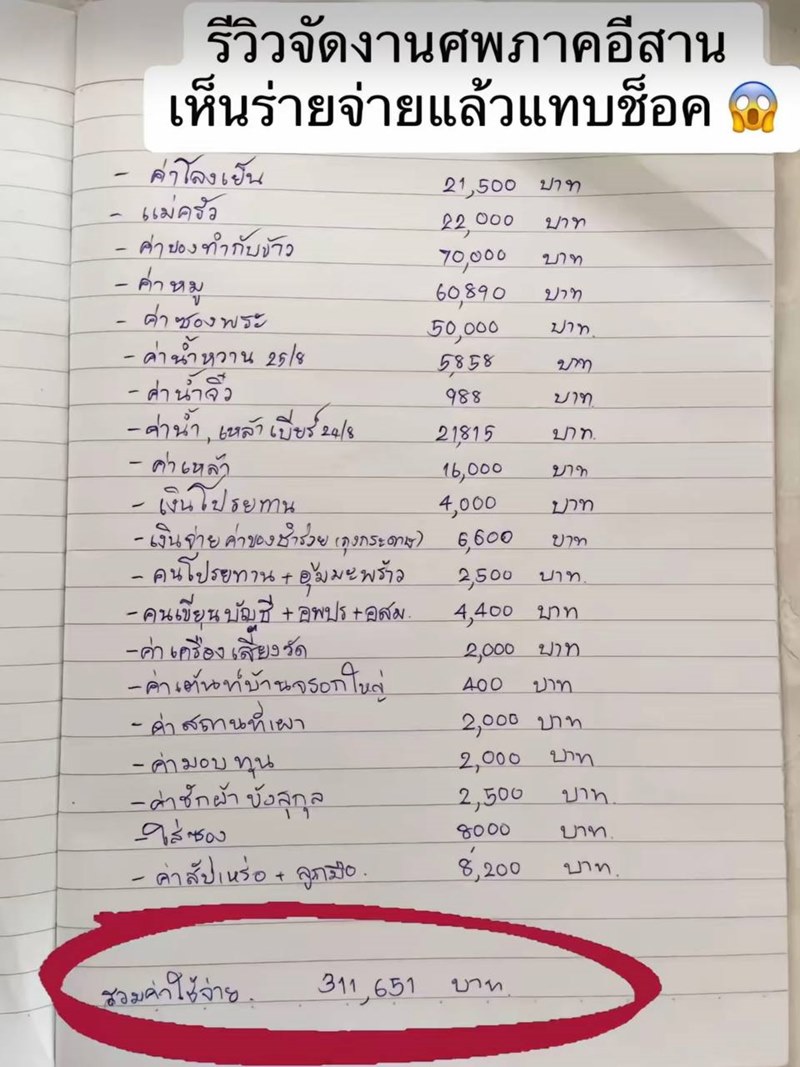 รีวิวจัดงานศพภาคอีสาน
เห็นร่ายจ่ายแล้วแทบช็อค 😱
- ค่าโลงเย็น 21,500 บาท
- แม่ครัว 22,000 บาท
- ค่าของทำกับข้าว 70,000 บาท
- ค่าหมู 60,890 บาท
- ค่าซองพระ 50,000 บาท.
- ค่าน้ำหวาน 25/8 5,858 บาท
- ค่าน้ำจิ้ว 988 บาท.
- ค่าน้ำ, เหล้า เบียร์ 24/8 21,815 บาท.
- ค่าเหล้า 16,000 บาท
- เงินโปรยทาน 4,000 บาท.
- เงินจ่าย ค่าของชำร่วย (ถุงกระดาษ) 6,600 บาท
- คนโปรยทาน + อุ้มมะพร้าว 2,500 บาท.
- คนเขียนบัญชี + อพปร + อสม. 4,400 บาท
- ค่าเครื่องเสียงวัด 2,000 บาท
- ค่าเต้นท์บ้านจรอกใหญ่ 400 บาท
- ค่าสถานที่เผา 2,000 บาท
- ค่ามอบทุน 2,000 บาท
- ค่าชักผ้า บังสุกุล 2,500 บาท.
- ใส่ซอง 8000 บาท.
- ค่าสัปเหร่อ + ลูกมือ. 8,200 บาท.
รวมค่าใช้จ่าย. 311,651 บาท.